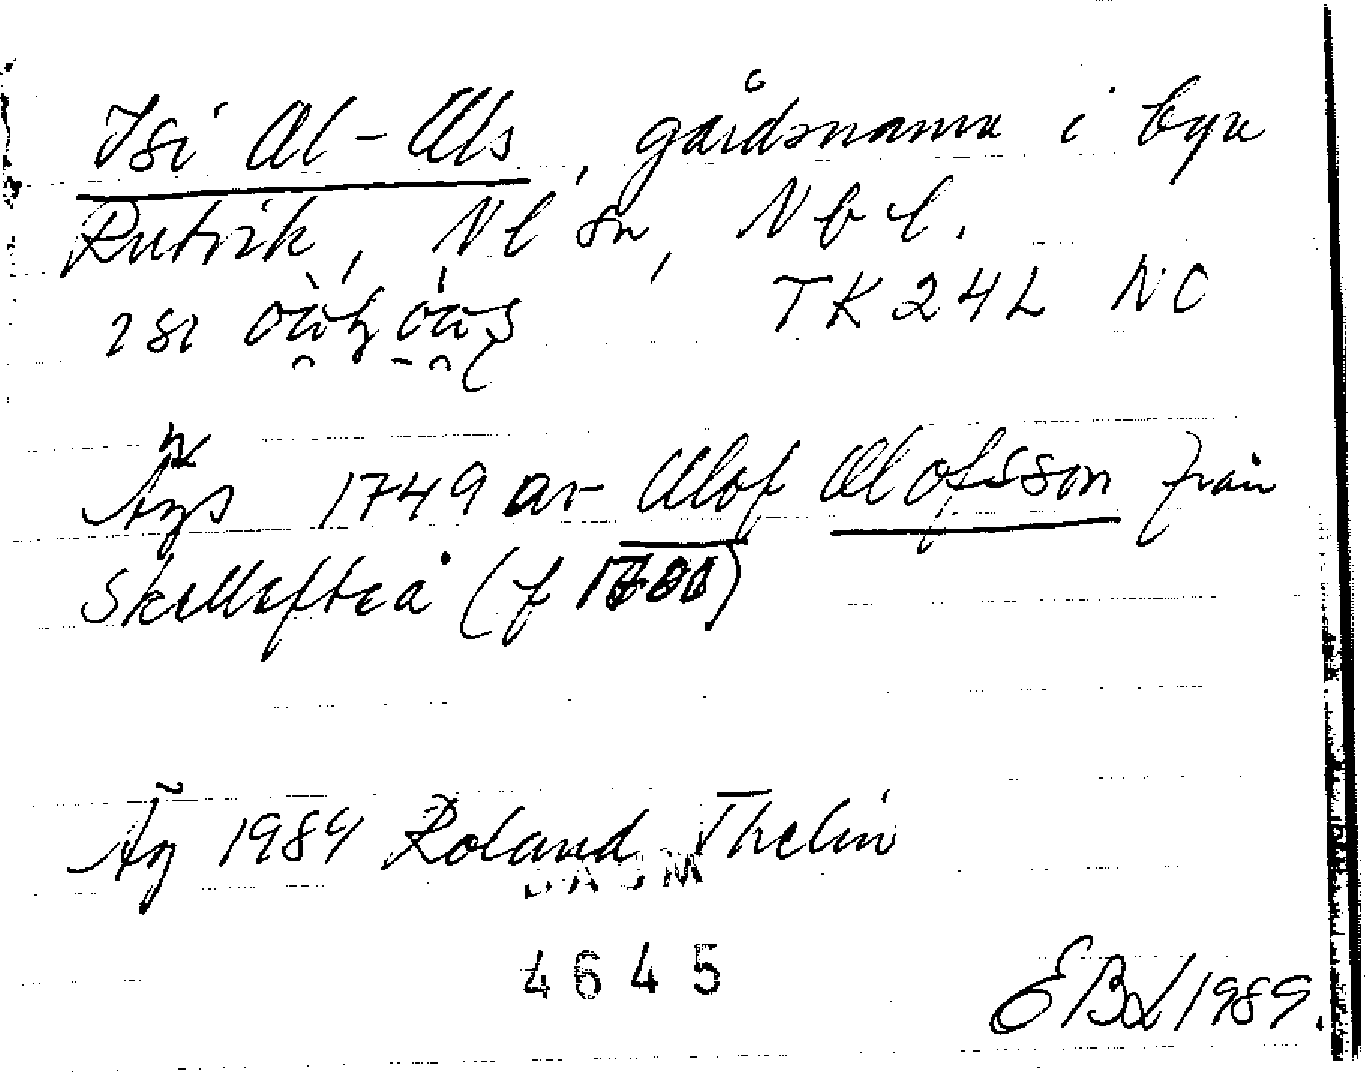 Isi Ol-Ols, gårdsnamn i byn
Rutvik, Nl sn, Nbl.
TK 24L NC
Äges 1749 av Olof Olofsson från
Skellefteå (f
Äg 1989 Roland Thelin
DASM
4645
EBd 1989.